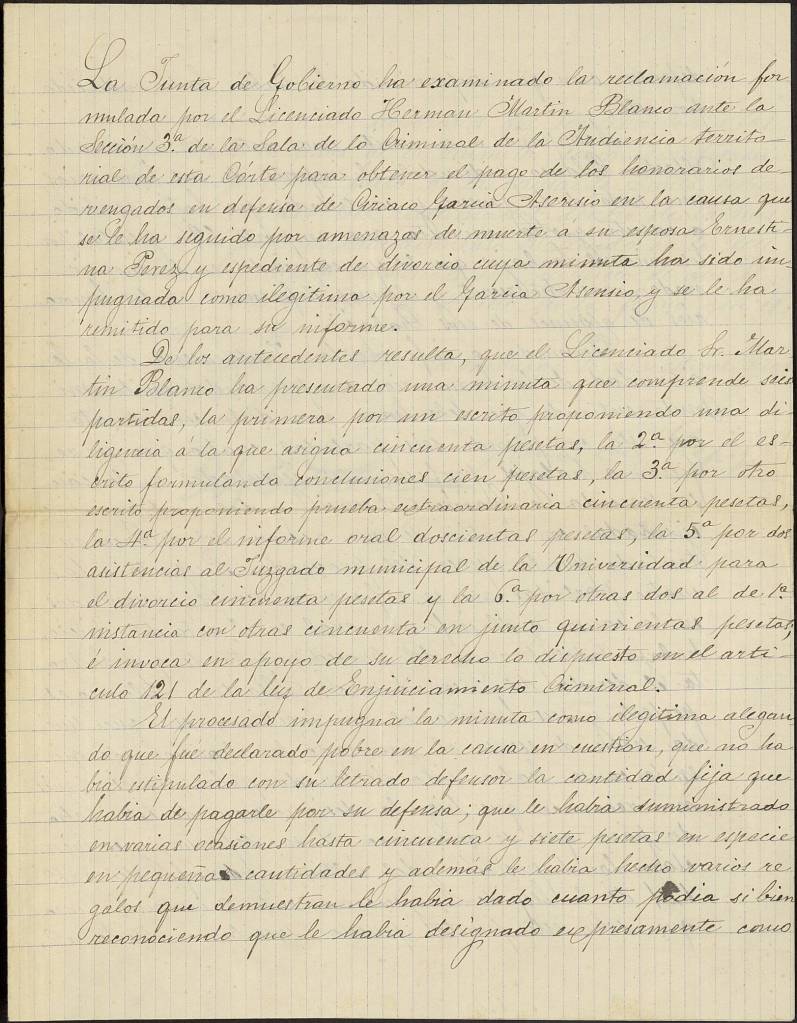 La Junta de Gobierno ha examinado la reclamación for
mulada por el Licenciado Herman Martin Blanco ante la
Sección 3.ª de la Sala de lo Criminal de la Audiencia territo-
rial de esta Córte para obtener el pago de los honorarios de-
vengados en defensa de Ciriaco Garcia Asensio en la causa que
se le ha seguido por amenazas de muerte á su esposa Ernesti-
na Perez y espediente de divorcio cuya minuta ha sido im-
pugnada como ilegitima por el Garcia Asensio, y se le ha
remitido para su informe.
De los antecedentes resulta, que el Licenciado Sr. Mar
tin Blanco ha presentado una minuta que comprende seis
partidas, la primera por un escrito proponiendo una di-
ligencia á la que asigna cincuenta pesetas, la 2.ª por el es-
crito formulando conclusiones cien pesetas, la 3.ª por otro
escrito proponiendo prueba extraordinaria cincuenta pesetas,
la 4.ª por el informe oral doscientas pesetas, la 5.ª por dos
asistencias al Juzgado municipal de la Universidad para
el divorcio cincuenta pesetas y la 6.ª por otras dos al de 1.ª
instancia con otras cincuenta en junto quinientas pesetas,
é invoca en apoyo de su derecho lo dispuesto en el arti-
culo 121 de la ley de Enjuiciamiento Criminal.
El procesado impugna la minuta como ilegitima alegan-
do que fue declarado pobre en la causa en cuestion, que no ha
bia estipulado con su letrado defensor la cantidad fija que
habia de pagarle por su defensa; que le habia suministrado
en varias ocasiones hasta cincuenta y siete pesetas en especie
en pequeñas cantidades y además le habia hecho varios re
galos que demuestran le habia dado cuanto podia si bien
reconociendo que le habia designado expresamente como